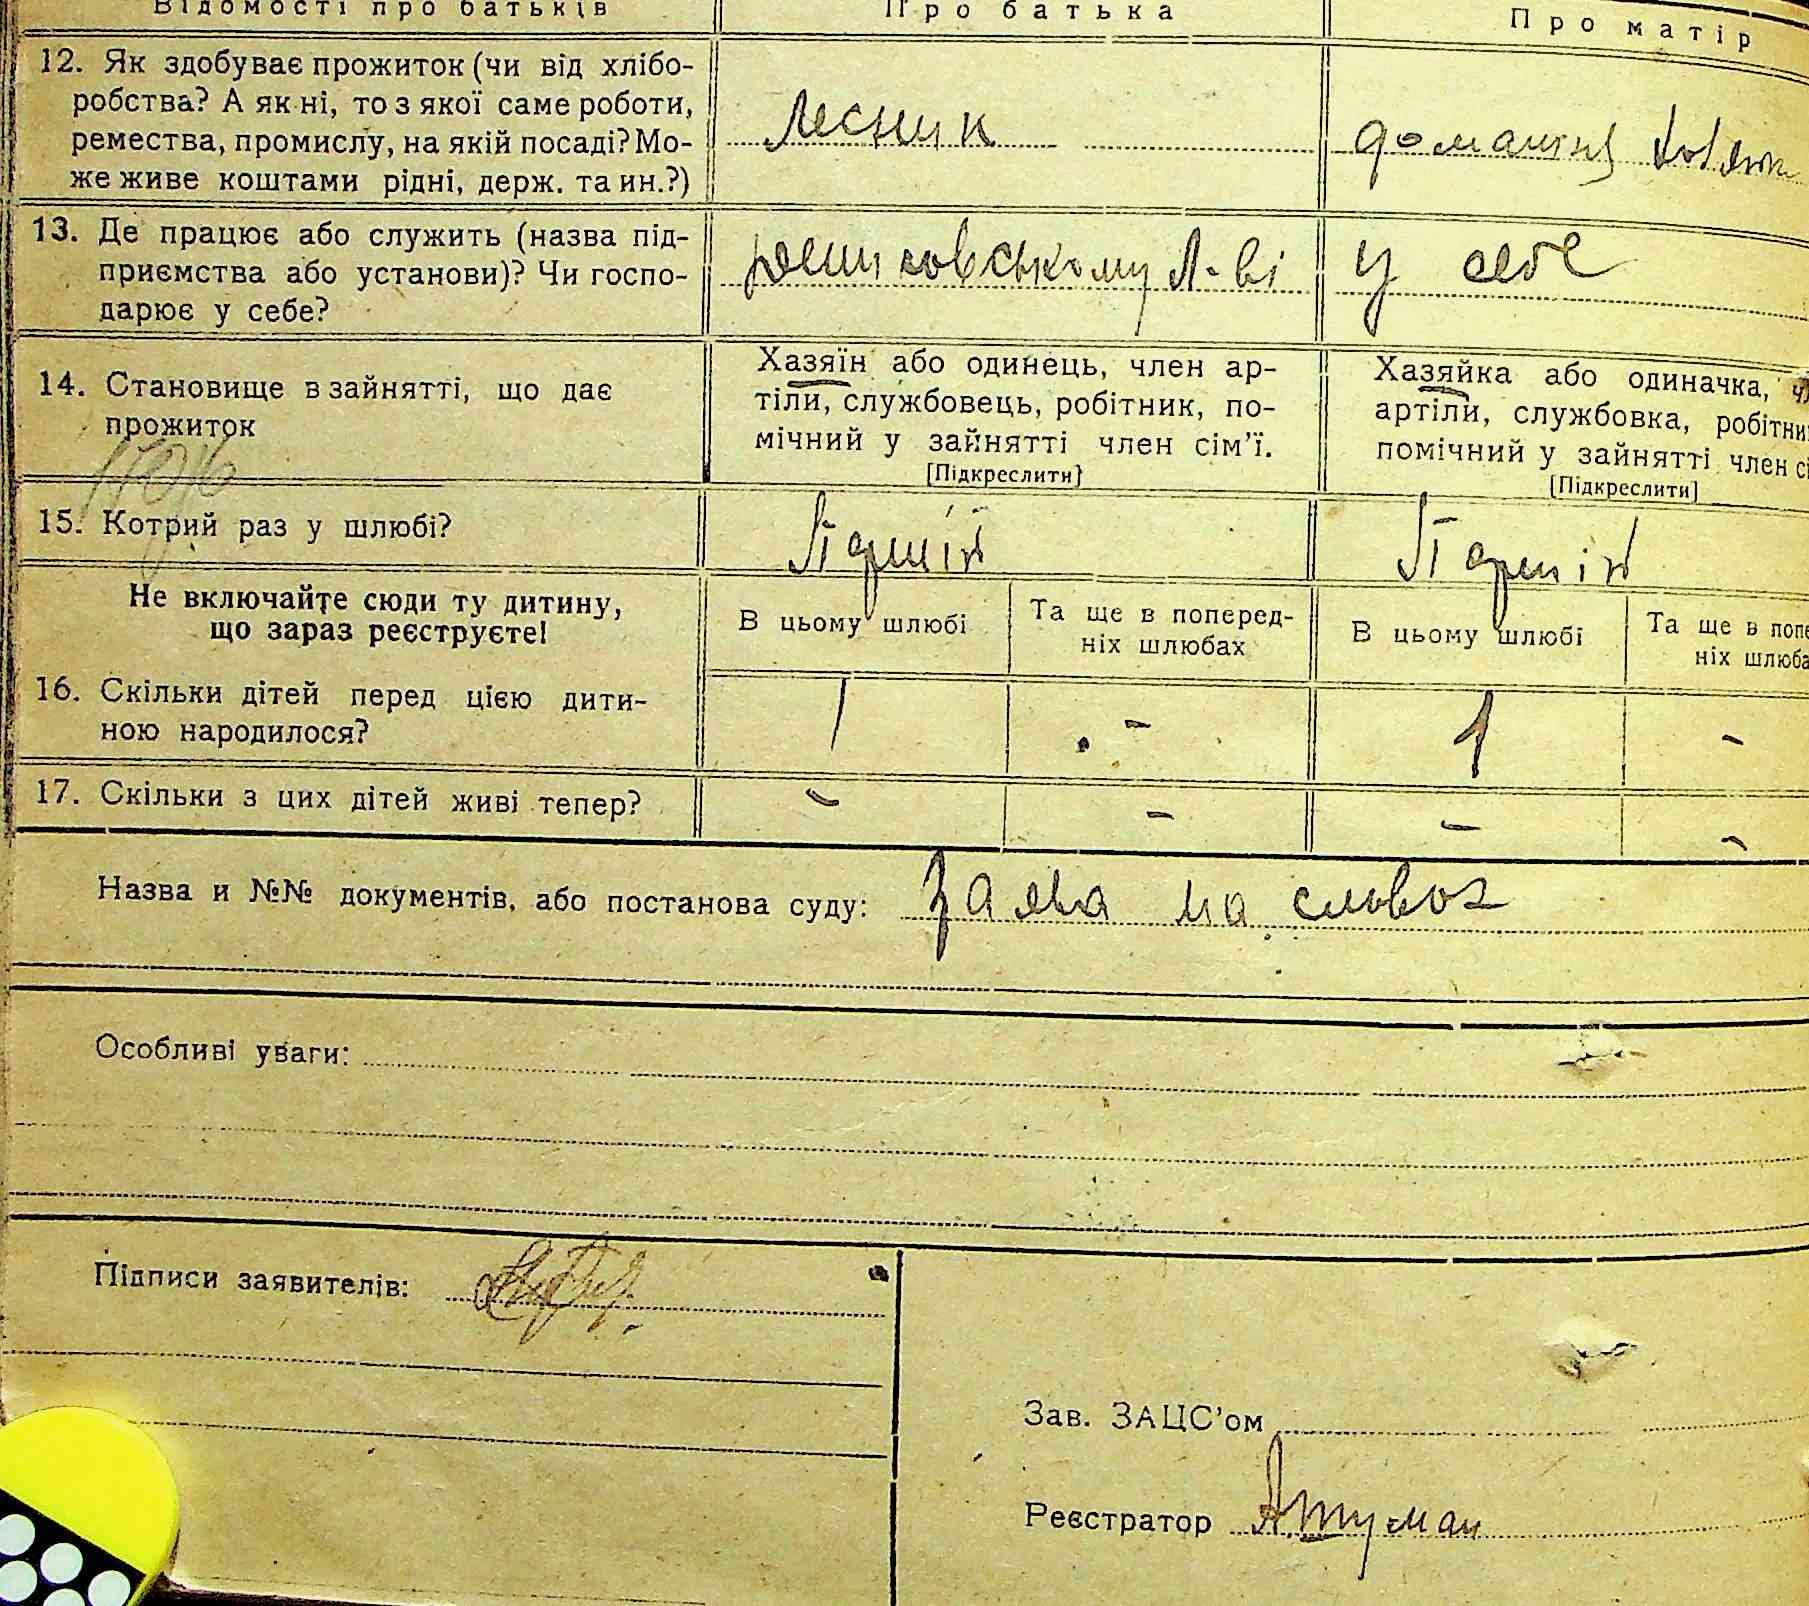 Відомості про батьків
Про батька
Про матір
12. Як здобуває прожиток (чи від хлібо-
робства? А як ні, то з якої саме роботи,
ремества, промислу, на якій посаді? Мо-
же живе коштами рідні, держ. та ин.?)
Лесник
домашня
13. Де працює або служить (назва під-
приємства або установи)? Чи госпо-
дарює у себе?
Л-ві
у себе
14. Становище в зайнятті, що дає
прожиток
Хазяїн або одинець, член ар-
тіли, службовець, робітник, по-
мічний у зайнятті член сім'ї.
[Підкреслити}
Хазяйка або одиначка,
артіли, службовка, робітни
помічний у зайнятті член сі
[Підкреслити]
15. Котрий раз у шлюбі?
Перший
Перший
Не включайте сюди ту дитину,
що зараз реєструєте!
В цьому шлюбі
Та ще в поперед-
ніх шлюбах
В цьому шлюбі
Та ще в попе
ніх шлюба
16. Скільки дітей перед цією дити-
ною народилося?
1
-
1
-
17. Скільки з цих дітей живі тепер?
-
-
-
-
Назва и №№ документів, або постанова суду: Заява на словах
Особливі уваги:
Підписи заявителів:
Зав. ЗАЦС'ом
Реєстратор